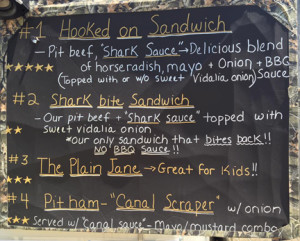 #1 Hooked on Sandwich
- Pit beef, "Shark Sauce" → Delicious blend
of horseradish, mayo + Onion + BBQ
(Topped with or w/o sweet Vidalia onion) Sauce
#2 Shark bite Sandwich
- Our pit beef + "shark sauce" topped with
sweet vidalia onion
*our only sandwich that bites back!!
NO BBQ Sauce!!
#3 The Plain Jane → Great for Kids!!
#4 Pit ham - "Canal Scraper" w/ onion
Served w/ "canal sauce" - Mayo/mustard combo